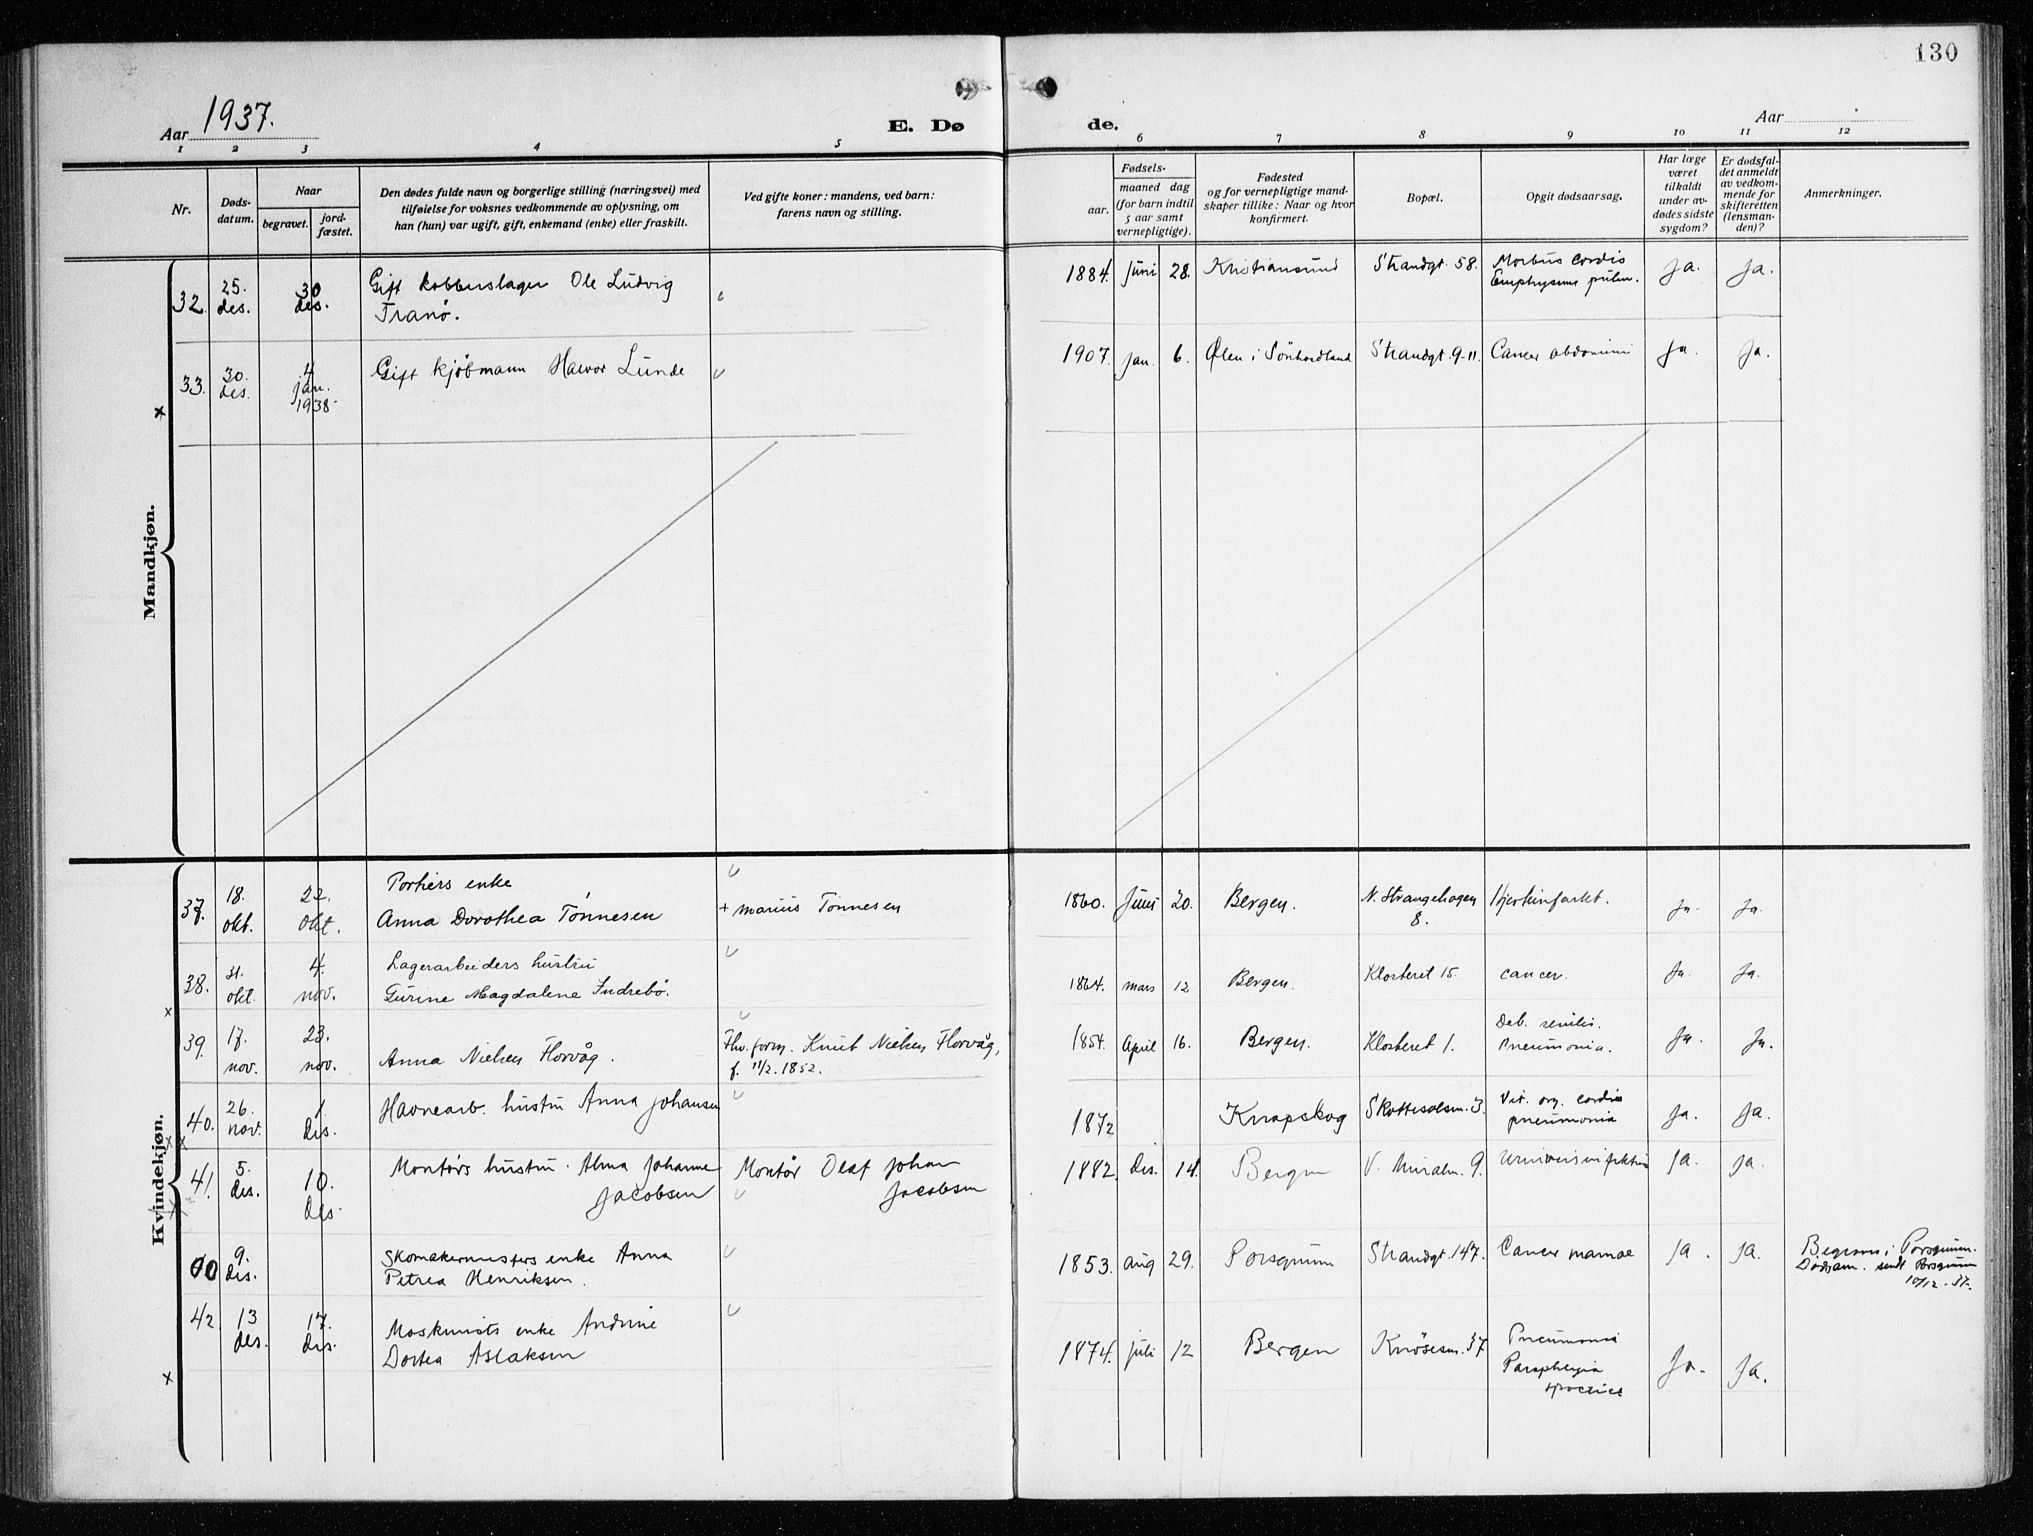 130
Aar 1937.
E. Dø
de.
Aar
1 2 3 4 5 6 7 8 9 10 11 12
Nr.
Døds-
datum.
Naar
begravet.
jord-
fæstet.
Den dødes fulde navn og borgerlige stilling (næringsvei) med
tilføielse for voksnes vedkommende av oplysning, om
han (hun) var ugift, gift, enkemand (enke) eller fraskilt.
Ved gifte koner: mandens, ved barn:
farens navn og stilling.
Fødsels-
aar.
maaned dag
(for barn indtil
5 aar samt
vernepligtige).
Fødested
og for vernepligtige mand-
skaper tillike: Naar og hvor
konfirmert.
Bopæl.
Opgit dødsaarsag.
Har læge
været
tilkaldt
under av-
dødes sidste
sygdom?
Er dødsfal-
det anmeldt
av vedkom-
mende for
skifteretten
(lensman-
den)?
Anmerkninger.
Mandkjøn.
32. 25. des. 30 des. Gift kobberslager Ole Ludvig
Tranø.
1884. Juni 28. Kristiansund Strandgt. 58. Morbus cordis
Emphysem pulm. Ja. Ja.
33. 30. des. 4 jan. 1938 Gift kjøbmann Halvor Lunde
1907. Jan. 6. Ølen i Sønhordland Strandgt. 9-11. Cancer abdomini Ja. Ja.
Kvindekjøn.
37. 18. okt. 22. okt. Portiers enke
Anna Dorothea Tönnesen
+ Marius Tönnesen
1860. Juni 20. Bergen. N. Strangehagen
8. Hjerteinfarkt. Ja. Ja.
38. 31. okt. 4. nov. Lagerarbeiders hustru
Gurine Magdalene Indrebö.
1864. Mars 12 Bergen. Klosteret 15 cancer. Ja. Ja.
39. 17. nov. 23. nov. Anna Nielsen Florvåg.
Fhv. form. Knut Nielsen Florvåg,
f. 11/2. 1852.
1854. April 16. Bergen. Klosteret 1. Deb. senilis.
Pneumonia. Ja. Ja.
40. 26. nov. 1. des. Havnearb. hustru Anna Johansen
1872 Knapskog Skottesalsm. 3. Vit. org. cordis
pneumonia Ja. Ja.
41. 5. des. 10. des. Montørs hustru. Alma Johanne
Jacobsen
Montør Olaf Johan
Jacobsen
1882. des. 14. Bergen V. Muralm. 9. Ja. Ja.
00 9. des. Skomakermesters enke Anna
Petrea Henriksen.
1853. Aug 29. Porsgrunn Strandgt. 147. Cancer mamae Ja. Ja.
Begraves i Porsgrunn.
Dødsan. sendt Porsgrunn
10/12. 37.
42. 13 des. 17. des. Maskinists enke Andrine
Dortea Aslaksen
1874. Juli 12 Bergen Knøsesm. 37 Pneumonia
Paraplegia
Ja. Ja.